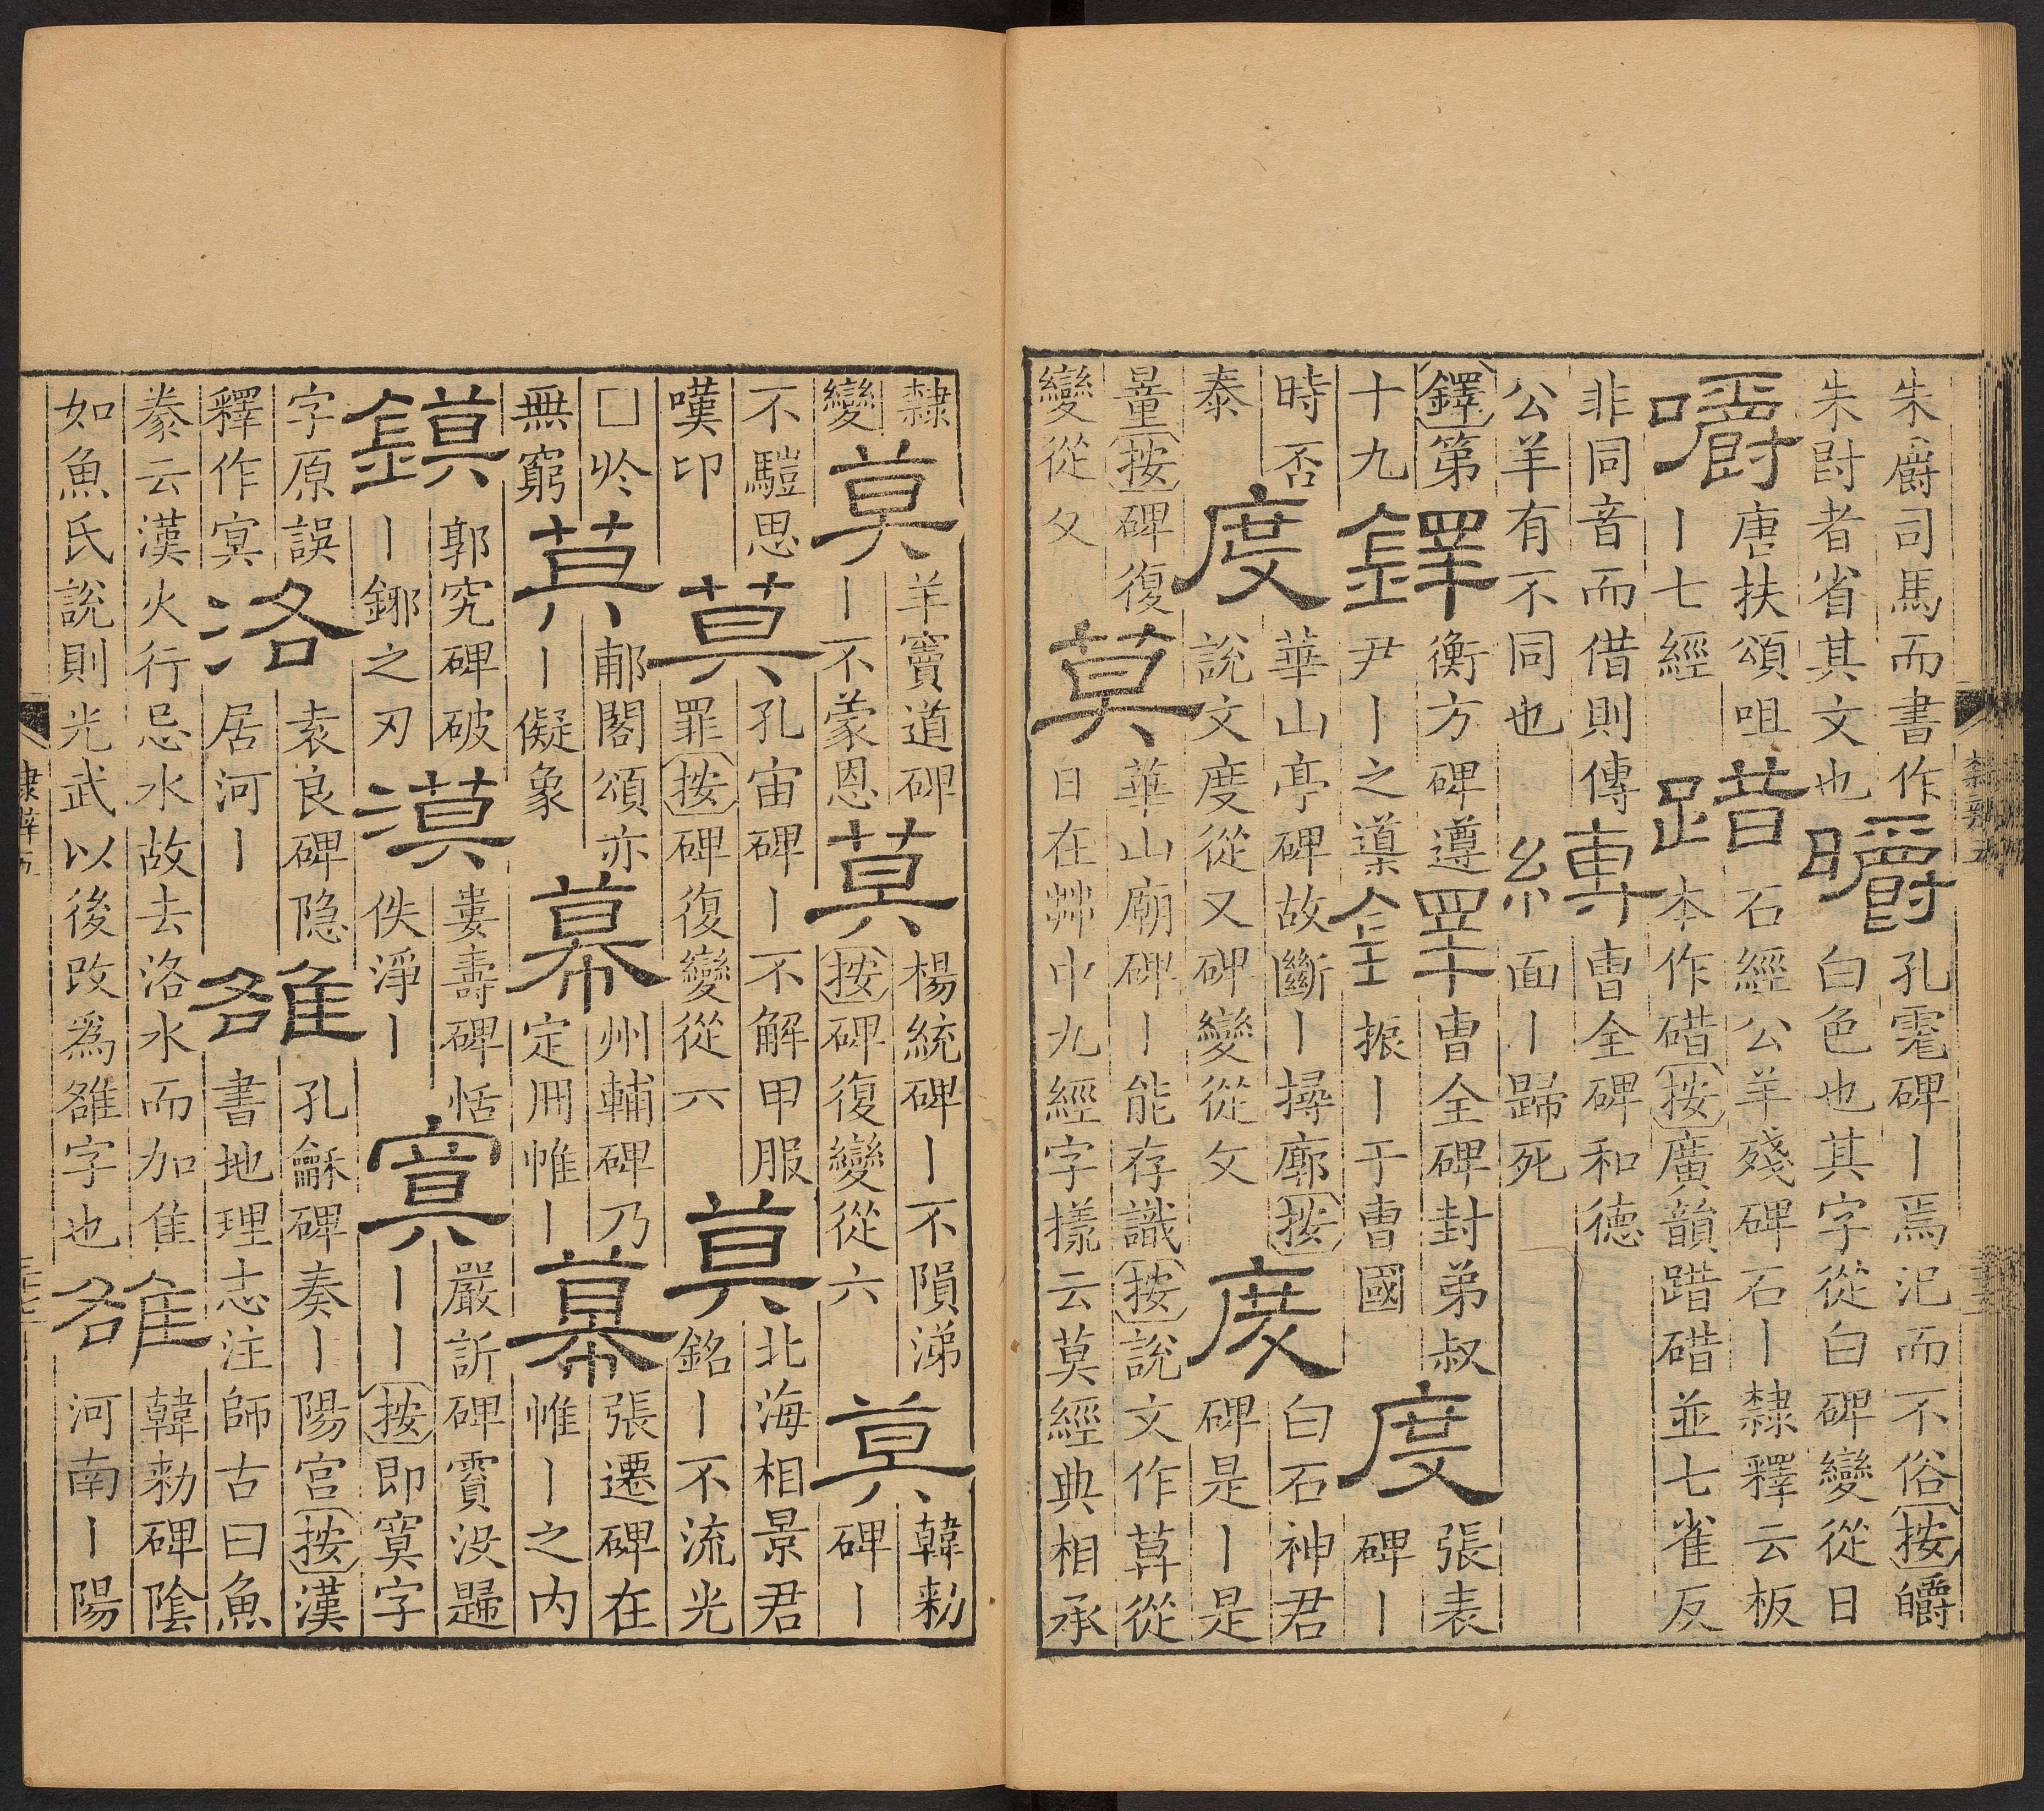 朱爵司馬而書作
朱㝵者省其文也
㬭
孔霓碑丨焉汜而不俗按皭
白色也其字從白碑變從日
嚼
唐扶頌咀
丨七經
踖
石經公羊殘碑石丨隸釋云板
本作碏按廣韻踖碏並七雀反
非同音而借則傳
公羊有不同也
縛
曹全碑和德
面丨歸死
鐸第
十九
鐸
衡方碑遵
尹丨之導
鐸
曹全碑封弟叔
振丨于曹國
度
張表
碑丨
時否
泰
度
華山亭碑故斷丨㨗廓按
說文度從又碑變從攵
度
白石神君
碑是丨是
量按碑復
變從攵
莫
華山廟碑丨能存識按說文作䒬從
日在茻中九經字㨾云莫經典相承
隸辨五
隸
變
莫
羊竇道碑
丨不蒙恩
莫
楊統碑丨不隕涕
按碑復變從六
莫
韓勑
碑丨
不騹思
嘆卬
莫
孔宙碑丨不解甲服
罪按碑復變從六
莫
北海相景君
銘丨不流光
□坽
無窮
莫
郙閣頌亦
丨儗象
幕
州輔碑乃
定冊帷丨
幕
張遷碑在
帷丨之內
鏌
郭究碑破
丨鋣之刃
漠
婁壽碑恬
佚淨丨
寞
嚴訢碑賓沒歸
丨丨按即寞字
字原誤
釋作寘
洛
袁良碑隱
居河丨
雒
孔龢碑奏丨陽宮按漢
書地理志注師古曰魚
豢云漢火行忌水故去洛水而加隹
如魚氏說則光武以後改爲雒字也
雒
韓勑碑陰
河南丨陽
隸辨五